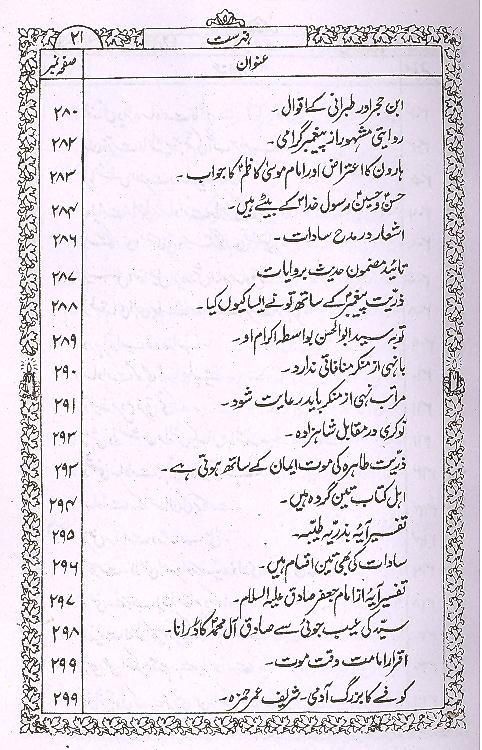 ۲۱ فہرست
صفحہ نمبر عنوان
ابن حجر اور طبرانی کے اقوال۔ ۲۸۰
روایتی مشہور از پیغمبر گرامی۔ ۲۸۲
ہارون کا اعتراض اور امام موسیٰ کاظمؑ کا جواب۔ ۲۸۳
حسنؑ و حسینؑ رسول خداؐ کے بیٹے ہیں۔ ۲۸۴
اشعار در مدح سادات۔ ۲۸۶
تائید مضمون حدیث بروایات ۲۸۷
ذریت پیغمبرؐ کے ساتھ تو نے ایسا کیوں کیا۔ ۲۸۸
توبہ سید ابوالحسن بواسطہ اکرام او۔ ۲۸۹
با نہی از منکر منافاتی ندارد۔ ۲۹۰
مراتب نہی از منکر باید رعایت شود۔ ۲۹۱
نوکری در مقابل شاہزادہ۔ ۲۹۲
ذریت طاہرہ کی موت ایمان کے ساتھ ہوتی ہے۔ ۲۹۳
اہل کتاب تین گروہ ہیں۔ ۲۹۴
تفسیر آیۂ بذریہ طیبہ۔ ۲۹۵
سادات کی بھی تین اقسام ہیں۔ ۲۹۶
تفسیر آیہ از امام جعفر صادق علیہ السلام۔ ۲۹۷
سید کی عیب جوئی سے صادق آل محمدؐ کا ڈرانا۔ ۲۹۸
اقرار امامت وقت موت۔ ۲۹۹
کوفے کا بزرگ آدمی۔ شریف عمر حمزہ۔ ۲۹۹